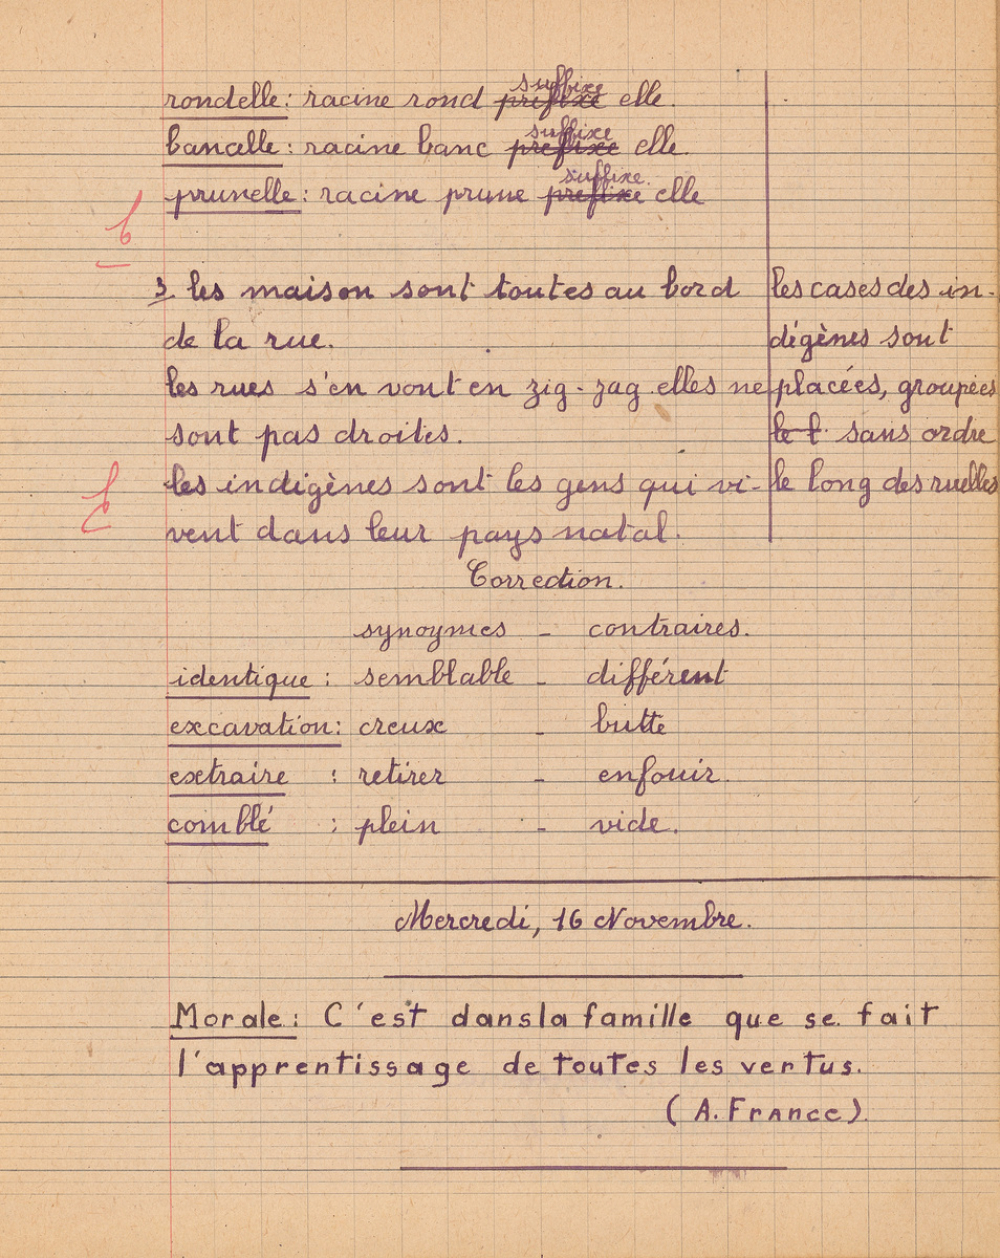 rondelle: racine rond préfixe suffixe elle.
bancelle: racine banc prefixe suffixe elle.
prunelle: racine prune prefixe suffixe. elle
3 les maison sont toutes au bord
de la rue.
les rues s'en vont en zig-zag elles ne
sont pas droites.
les indigènes sont les gens qui vi-
vent dans leur pays natal.
les cases des in-
digènes sont
placées, groupées
le l. sans ordre
le long des ruelles
Correction.
synoymes - contraires.
identique : semblable - différent
excavation: creux - butte
extraire : retirer - enfouir.
comblé : plein - vide.
Mercredi, 16 Novembre.
Morale: C'est dans la famille que se fait
l'apprentissage de toutes les vertus.
(A. France).